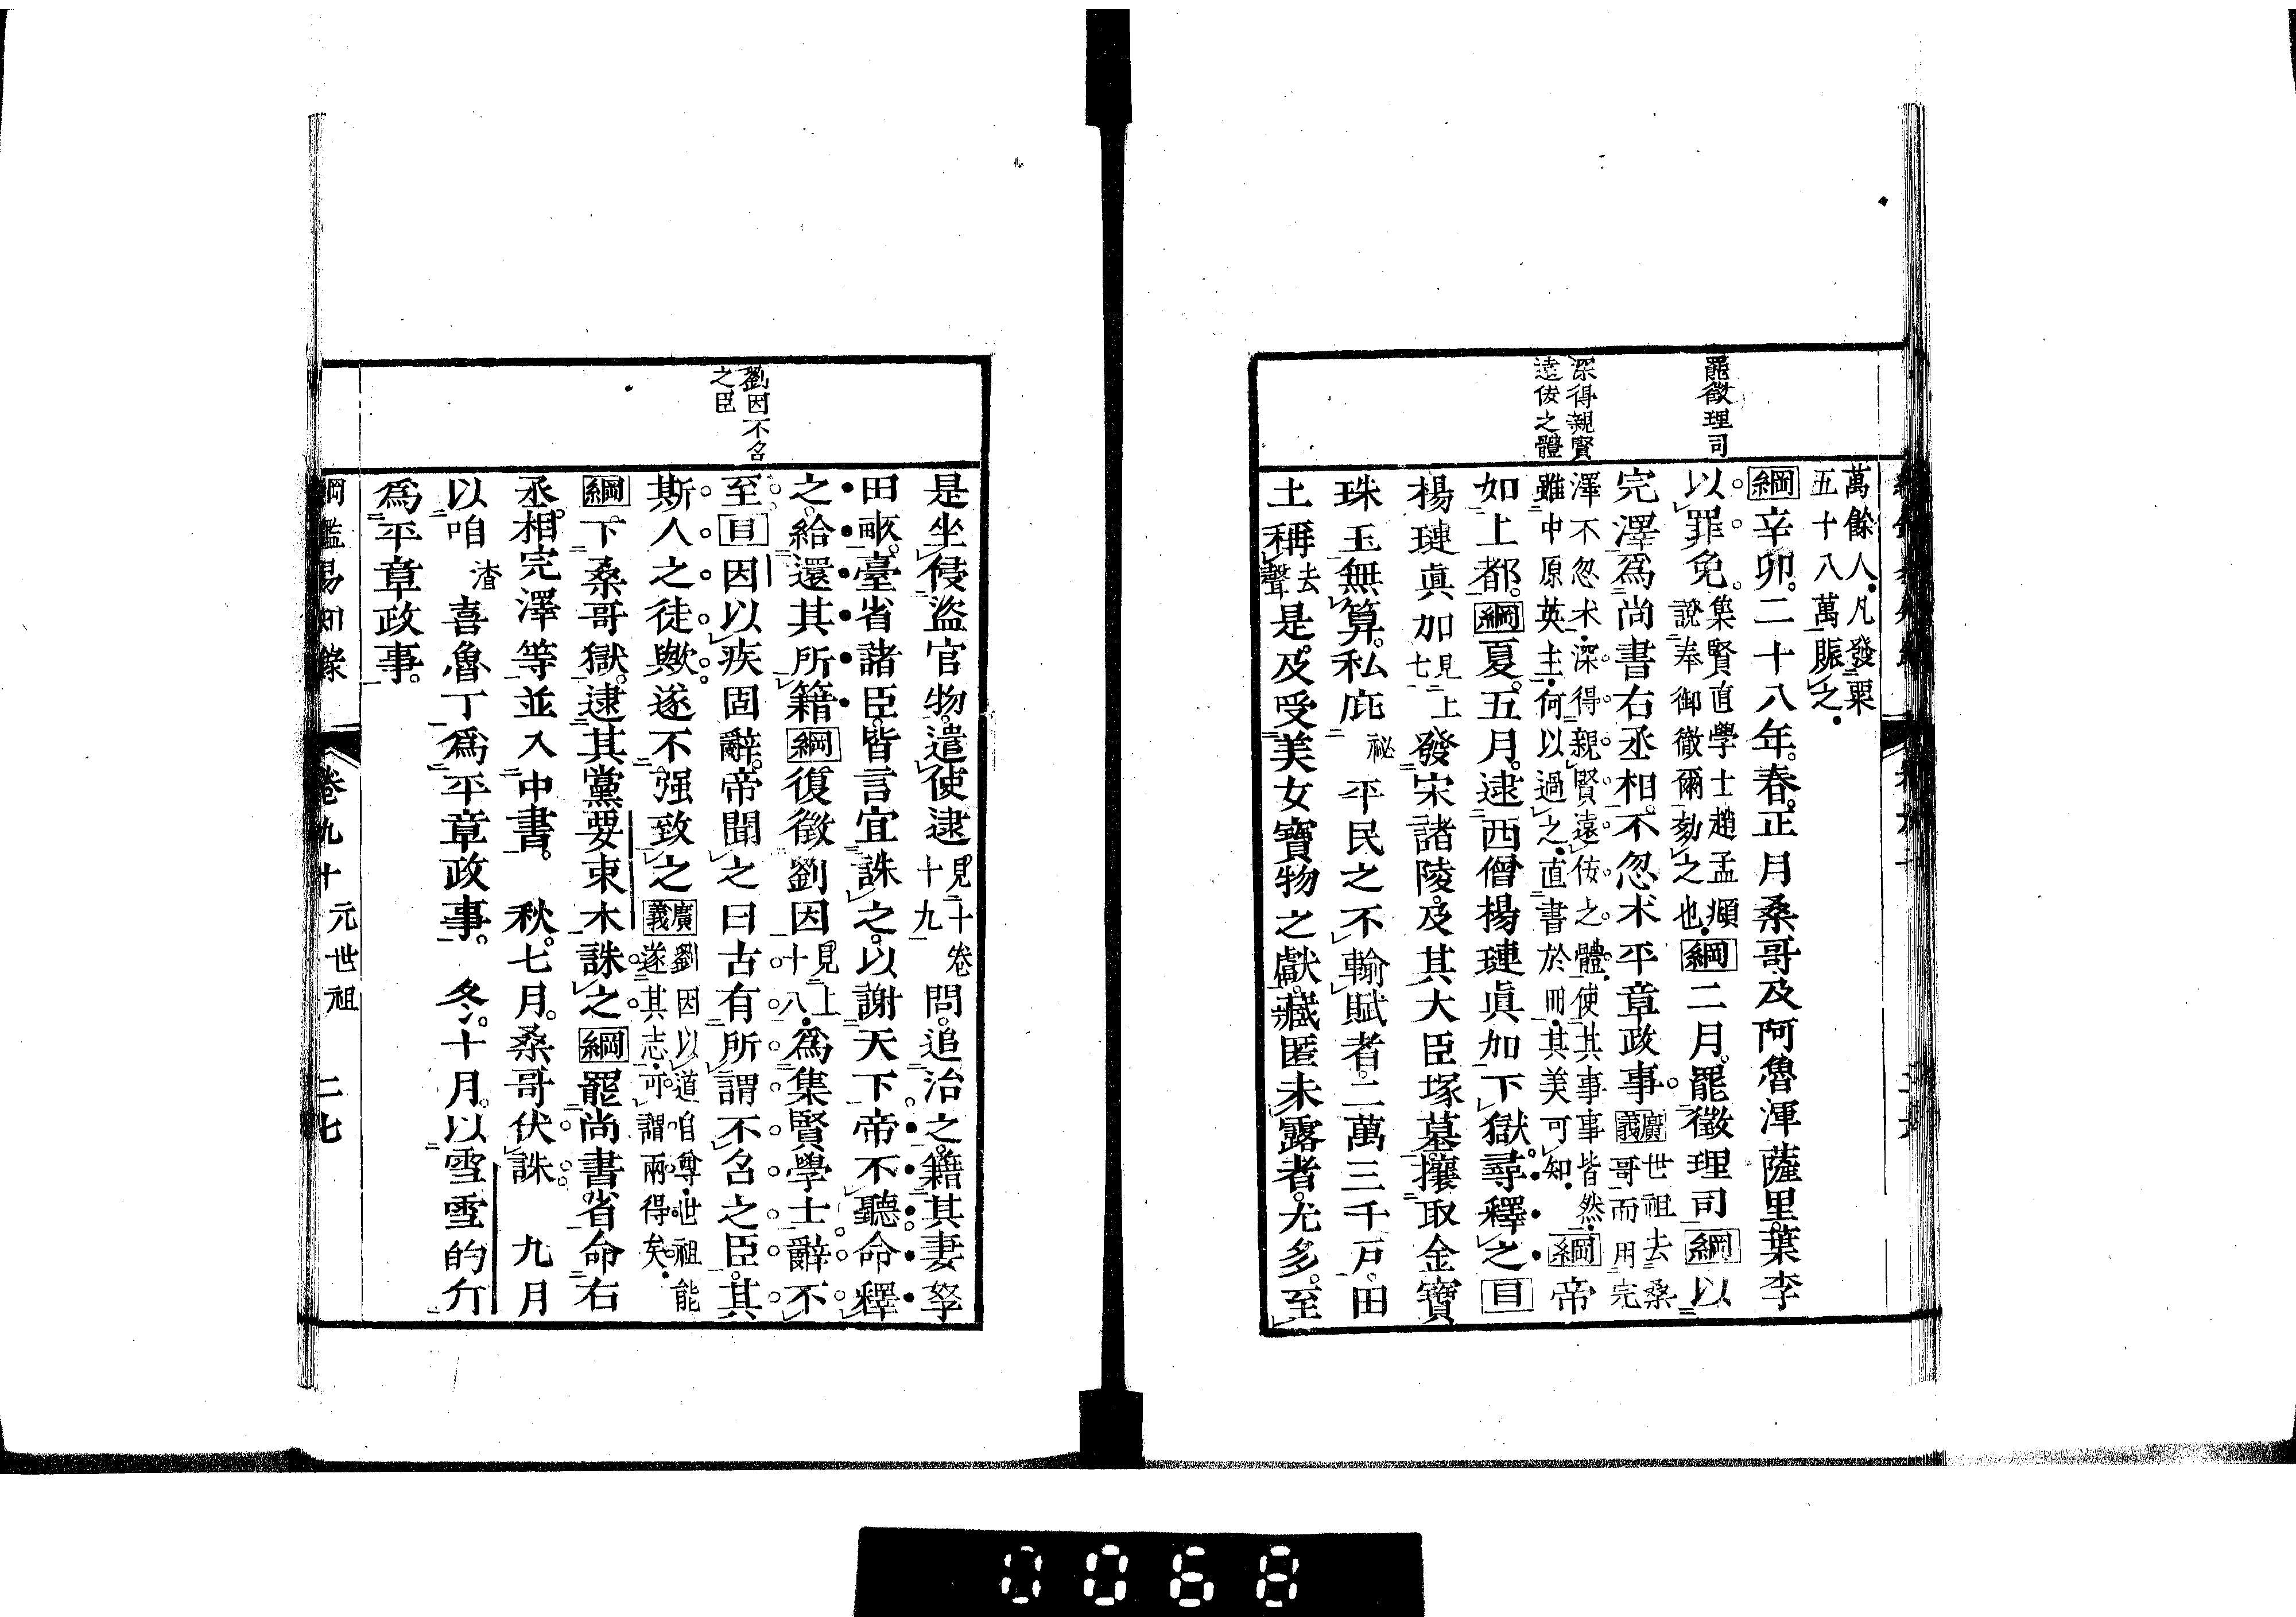 罷徵理司
深得親賢
遠佞之體
萬餘人凡發粟
五十八萬賑之
綱辛卯二十八年春正月桑哥及阿魯渾薩里葉李
以罪免集賢直學士趙孟頫
說奉御徹爾劾之也綱二月罷徵理司綱以
完澤爲尚書右丞相不忽朮平章政事廣義世祖去桑
哥而用完
澤不忽朮深得親賢遠佞之體使其事事皆然
雖中原英主何以過之直書於冊其美可知綱帝
如上都綱夏五月逮西僧楊璉眞加下獄尋釋之目
楊璉眞加見上
七發宋諸陵及其大臣塚墓攘取金寶
珠玉無算私庇祕平民之不輸賦者二萬三千戸田
土稱去
聲是及受美女寶物之獻藏匿未露者尤多至
劉因不召
之臣
是坐侵盜官物遣使逮見十卷
十九問追治之籍其妻孥
田畝臺省諸臣皆言宜誅之以謝天下帝不聽命釋
之給還其所籍綱復徵劉因見上
十八爲集賢學士辭不
至目因以疾固辭帝聞之曰古有所謂不召之臣其
斯人之徒歟遂不强致之廣義劉因以道自尊世祖能
遂其志可謂兩得矣
綱下桑哥獄逮其黨要束木誅之綱罷尚書省命右
丞相完澤等並入中書　秋七月桑哥伏誅　九月
以咱渣喜魯丁爲平章政事　冬十月以雪雪的斤
爲平章政事
綱鑑易知錄　卷九十　元世祖　二七
0068